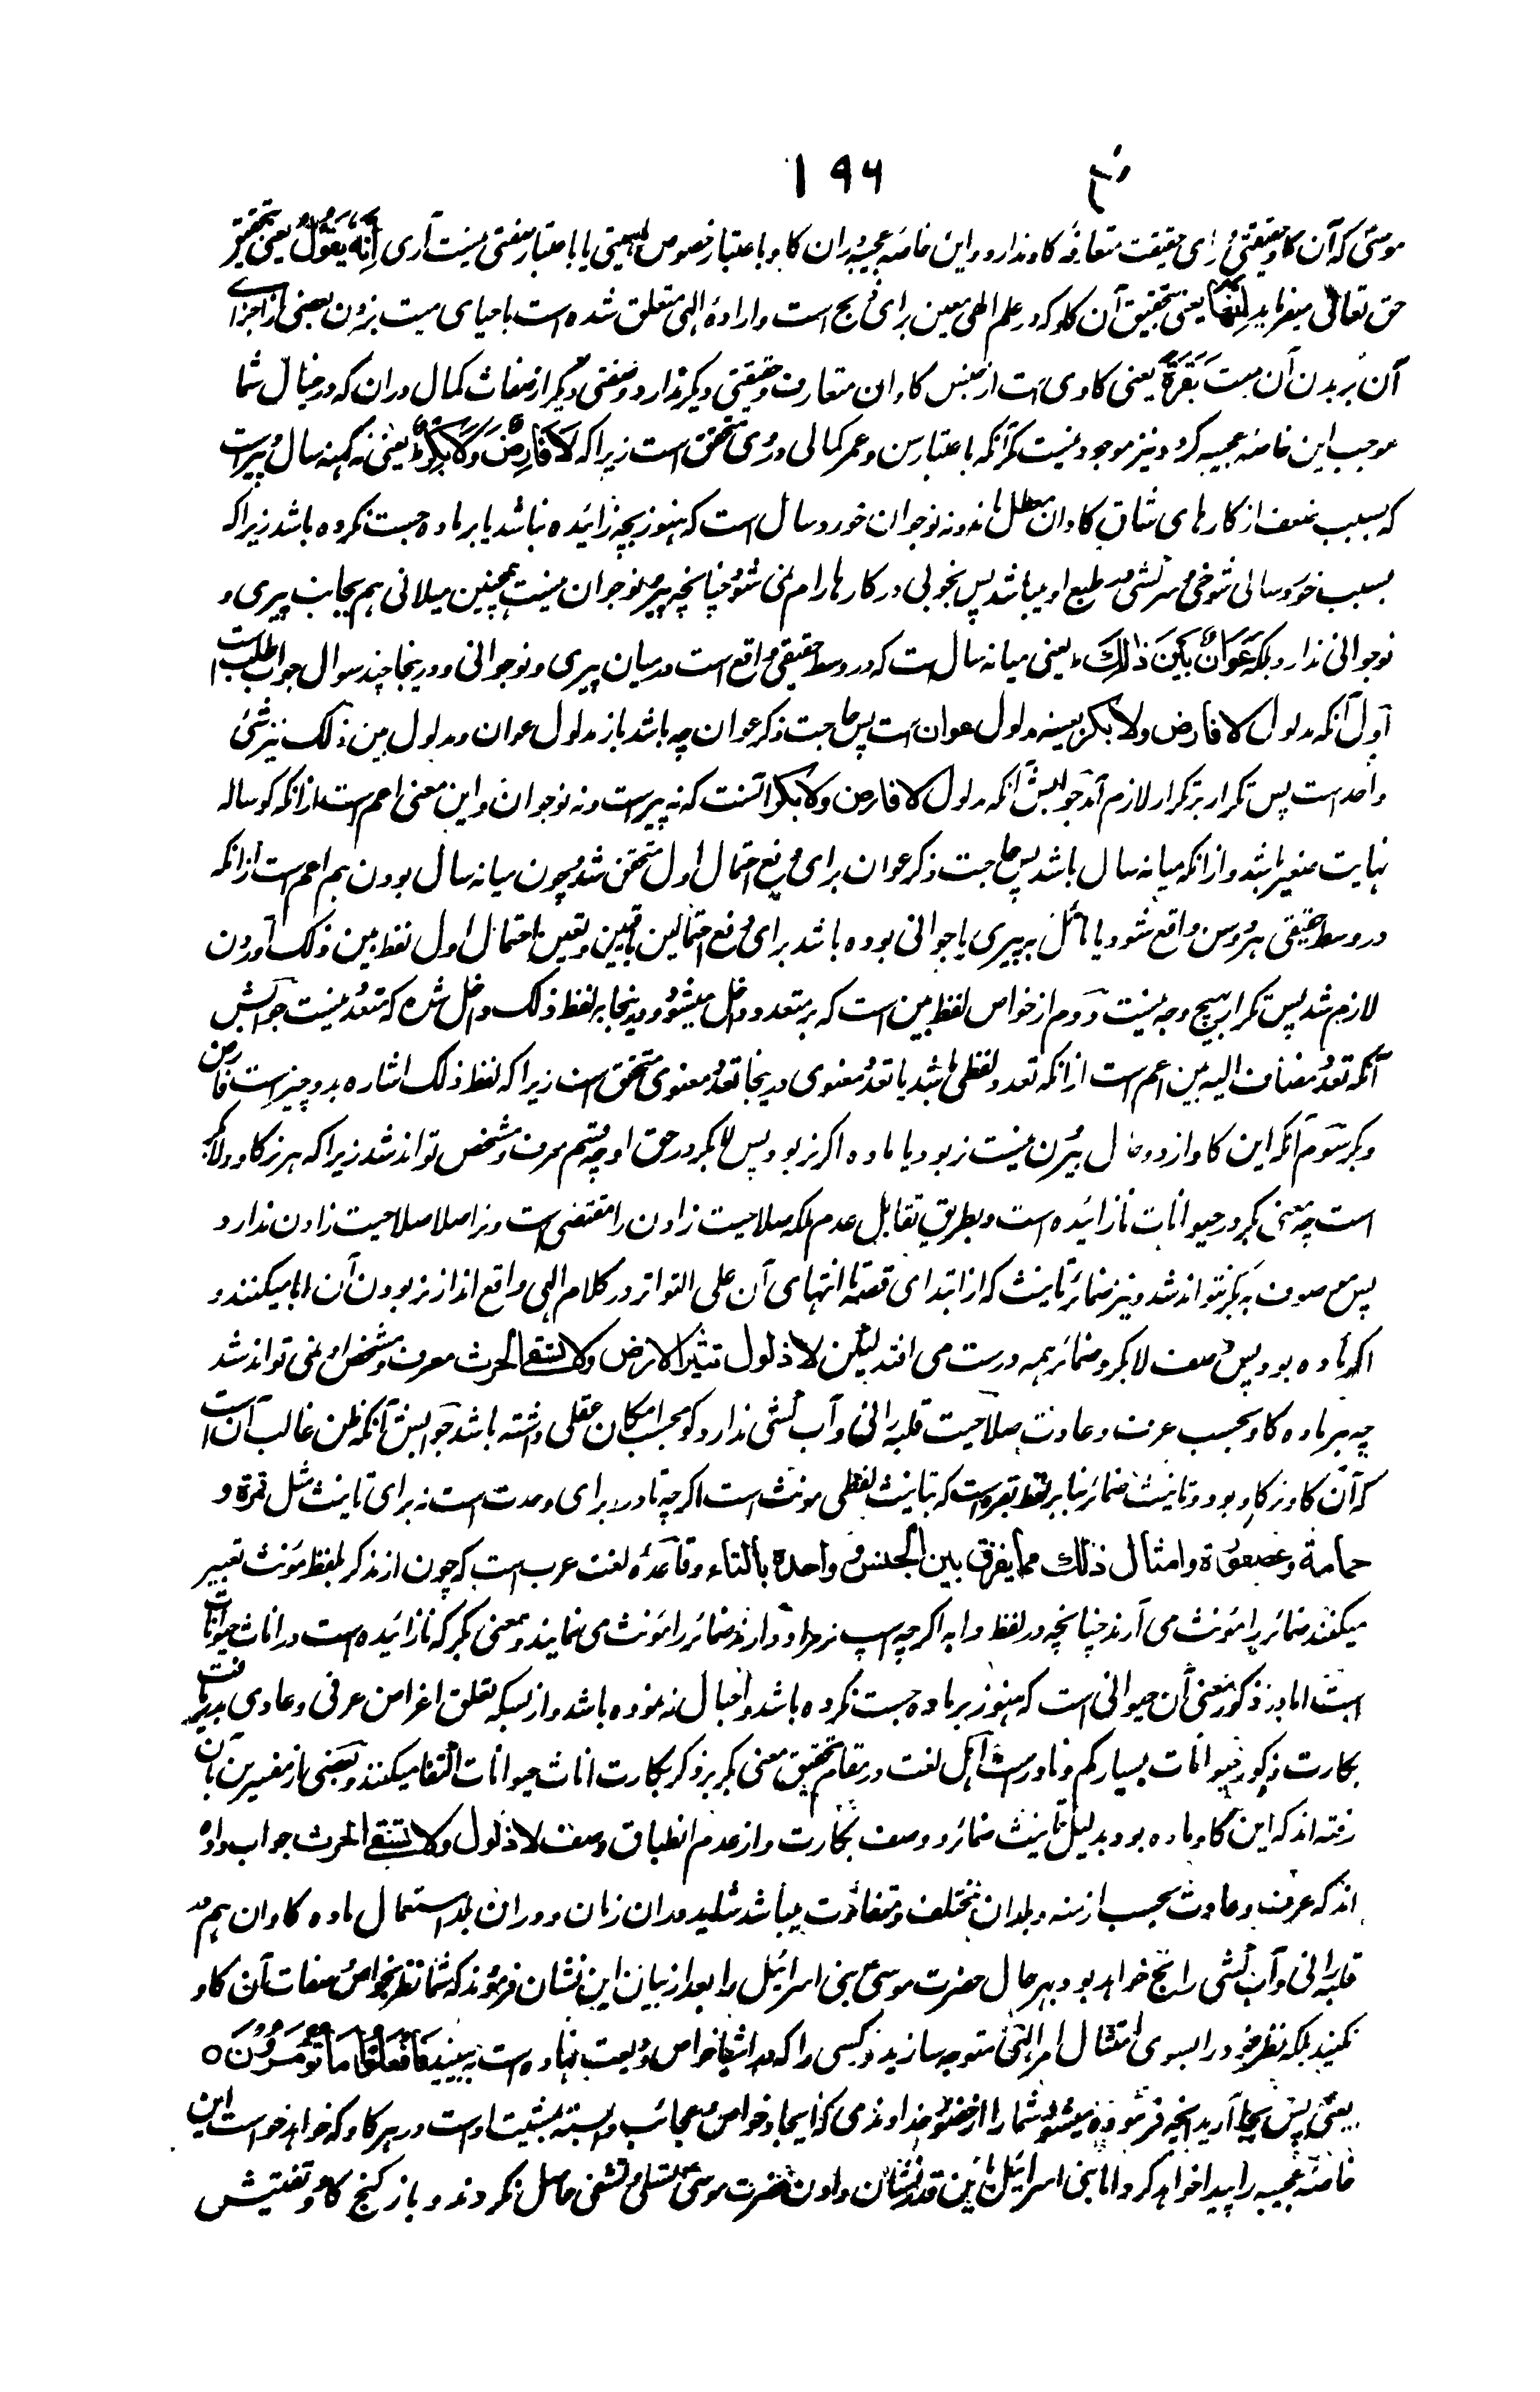 ۱۹۶
موسیٰ که آن گاو حقیقتی ورای حقیقت متعارفه گاو ندارد و این خاصه عجیبه دران گاو باعتبار خصوص ماهیتی یا باعتبار صفتی نیست آری اِنَّهٗ یَقُوۡلُ یعنی تحقیق
حق تعالی میفرماید اِنَّهَا یعنی تحقیق آن گاو که در علم الهی معین برای ذبح است و ارادهٔ الهی متعلق شده است باحیای میت بزدن بعضی از اجزای
آن بر بدن آن میت بَقَرَةٌ یعنی گاوی است از جنس گاوان متعارف و حقیقتی دیگر ندارد و صفتی دیگر از صفات کمال دران که در خیال شما
موجب این خاصه عجیبه گردد نیز موجود نیست مگر آنکه باعتبار سن و عمر کمالی در وی متحقق است زیراکه لَا فَارِضٌ وَّلَا بِکۡرٌ یعنی نه کهنه سال و پیرست
که بسبب ضعف از کارهای شاق گاوان معطل ماند و نه نوجوان خورد سال است که هنوز بچه نزائیده باشد یا بر ماده جست نکرده باشد زیراکه
بسبب خورد سالی شوخی و سرکشی در طبع او میباشد پس بخوبی در کارها رام نمی شود و چنانچه پیر و نوجوان نیست همچنین میلانی هم بجانب پیری و
نوجوانی ندارد بلکه عَوَانٌۢ بَیۡنَ ذٰلِكَ یعنی میانه سال است که در وسط حقیقی واقع است درمیان پیری و نوجوانی و درینجا چند سوال جواب طلب است
اول آنکه مدلول لا فارض ولا بکر بعینه مدلول عوان است پس حاجت ذکر عوان چه باشد باز مدلول عوان و مدلول بین ذلک نیز شئ
واحد است پس تکرار بر تکرار لازم آمد جوابش آنکه مدلول لا فارض ولا بکر آنست که نه پیرست و نه نوجوان و این معنی اعم است ازانکه گوساله
نهایت صغیر باشد و ازانکه میانه سال باشد پس حاجت ذکر عوان برای دفع احتمال اول متحقق شد و چون میانه سال بودن هم اعم است ازانکه
در وسط حقیقی هر دو سن واقع شود یا مائل به پیری یا جوانی بوده باشد برای دفع احتمالین باقیین و تعین احتمال اول لفظ بین ذلک آوردن
لازم شد پس تکرار بهیچ وجه نیست دوم از خواص لفظ بین است که بر متعدد داخل میشود و درینجا بر لفظ ذلک داخل شده که متعدد نیست جوابش
آنکه تعدد مضاف الیه بین اعم است ازانکه تعدد لفظی باشد یا تعدد معنوی درینجا تعدد معنوی متحقق است زیراکه لفظ ذلک اشاره بدو چیزست فارض
و بکر سوم آنکه این گاو از دو حال بیرون نیست نر بود یا ماده اگر نر بود پس لا بکر در حق او چه قسم معرف و مشخص تواند شد زیراکه هر نر گاو ولا بکر
است چه معنی بکر در حیوانات نازائیده است و بطریق تقابل عدم ملکه صلاحیت زادن را مقتضی است و نر اصلا صلاحیت زادن ندارد
پس موصوف به بکر نتواند شد و نیز ضمائر تانیث که از ابتدای قصه تا انتهای آن علی التواتر در کلام الهی واقع اند از نر بودن آن ابا میکنند و
اگر ماده بود پس وصف لا بکر و ضمائر همه درست می افتد لیکن لا ذلول تثیر الارض ولا تسقی الحرث معرف و مشخص او نمی تواند شد
چه هر ماده گاو بحسب عرف و عادت صلاحیت قلبه رانی و آب کشی ندارد گو بحسب امکان عقلی داشته باشد جوابش آنکه ظن غالب آن است
که آن گاو نر گاو بود و تانیث ضمائر بنا بر لفظ بقره است که بتانیث لفظی مونث است اگرچه تا در بقره برای وحدت است نه برای تانیث مثل تمرة و
حمامة و عصفورة وامثال ذلك مما يفرق بين الجنس و واحده بالتاء و قاعدهٔ لغت عرب است که چون از مذکر بلفظ مونث تعبیر
میکنند ضمائر را مونث می آرند چنانچه در لفظ دابه اگرچه اسپ نر مراد دارند ضمائر را مونث می نمایند و معنی بکر که نازائیده است در اناث حیوانات
است اما در ذکور بمعنی آن حیوانی است که هنوز بر ماده جست نکرده باشد و احبال ننموده باشد و ازبسکه تعلق اغراض عرفی و عادی بدریافت
بکارت ذکور حیوانات بسیار کم و نادرست اهل لغت در مقام تحقیق معنی بکر بر ذکر بکارت اناث حیوانات اکتفا میکنند و بعضی از مفسرین بآن
رفته اند که این گاو ماده بود بدلیل تانیث ضمائر و وصف بکارت و از عدم انطباق وصف لا ذلول ولا تسقی الحرث جواب داده
اند که عرف و عادت بحسب ازمنه و بلدان مختلف و متفاوت میباشد شاید دران زمان و دران بلد استعمال ماده گاوان هم در
قلبه رانی و آب کشی رائج خواهد بود بهر حال حضرت موسیٰ بنی اسرائیل را بعد از بیان این نشان فرمودند که شما نظر بخواص و صفات آن گاو
نکنید بلکه نظر خود را بسوی امتثال امر الٰهی متوجه سازید و کسی را که در اشیا خواص ودیعت نهاده است به بینید فَافۡعَلُوۡا مَا تُؤۡمَرُوۡنَ ۝
یعنی پس بجا آرید آنچه فرموده میشود شما را از حضور خداوندی که ایجاد خواص و عجائب وابسته بمشیت اوست در هر گاو که خواهد خواست این
خاصه عجیبه را پیدا خواهد کرد اما بنی اسرائیل باین قدر نشان دادن حضرت موسیٰ تسلی و تشفی حاصل نکردند و باز کنج کاو و تفتیش